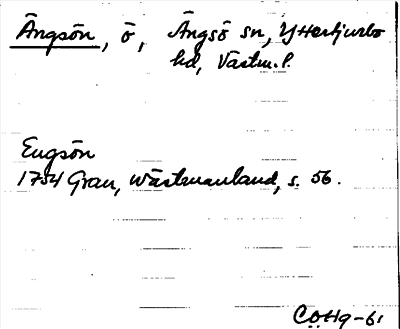 Ängsön, ö, Ängsö sn, Yttertjurbo
hd, Västm. l.
Engsön
1754 Grau, Wästmanland, s. 56.
COHg-61